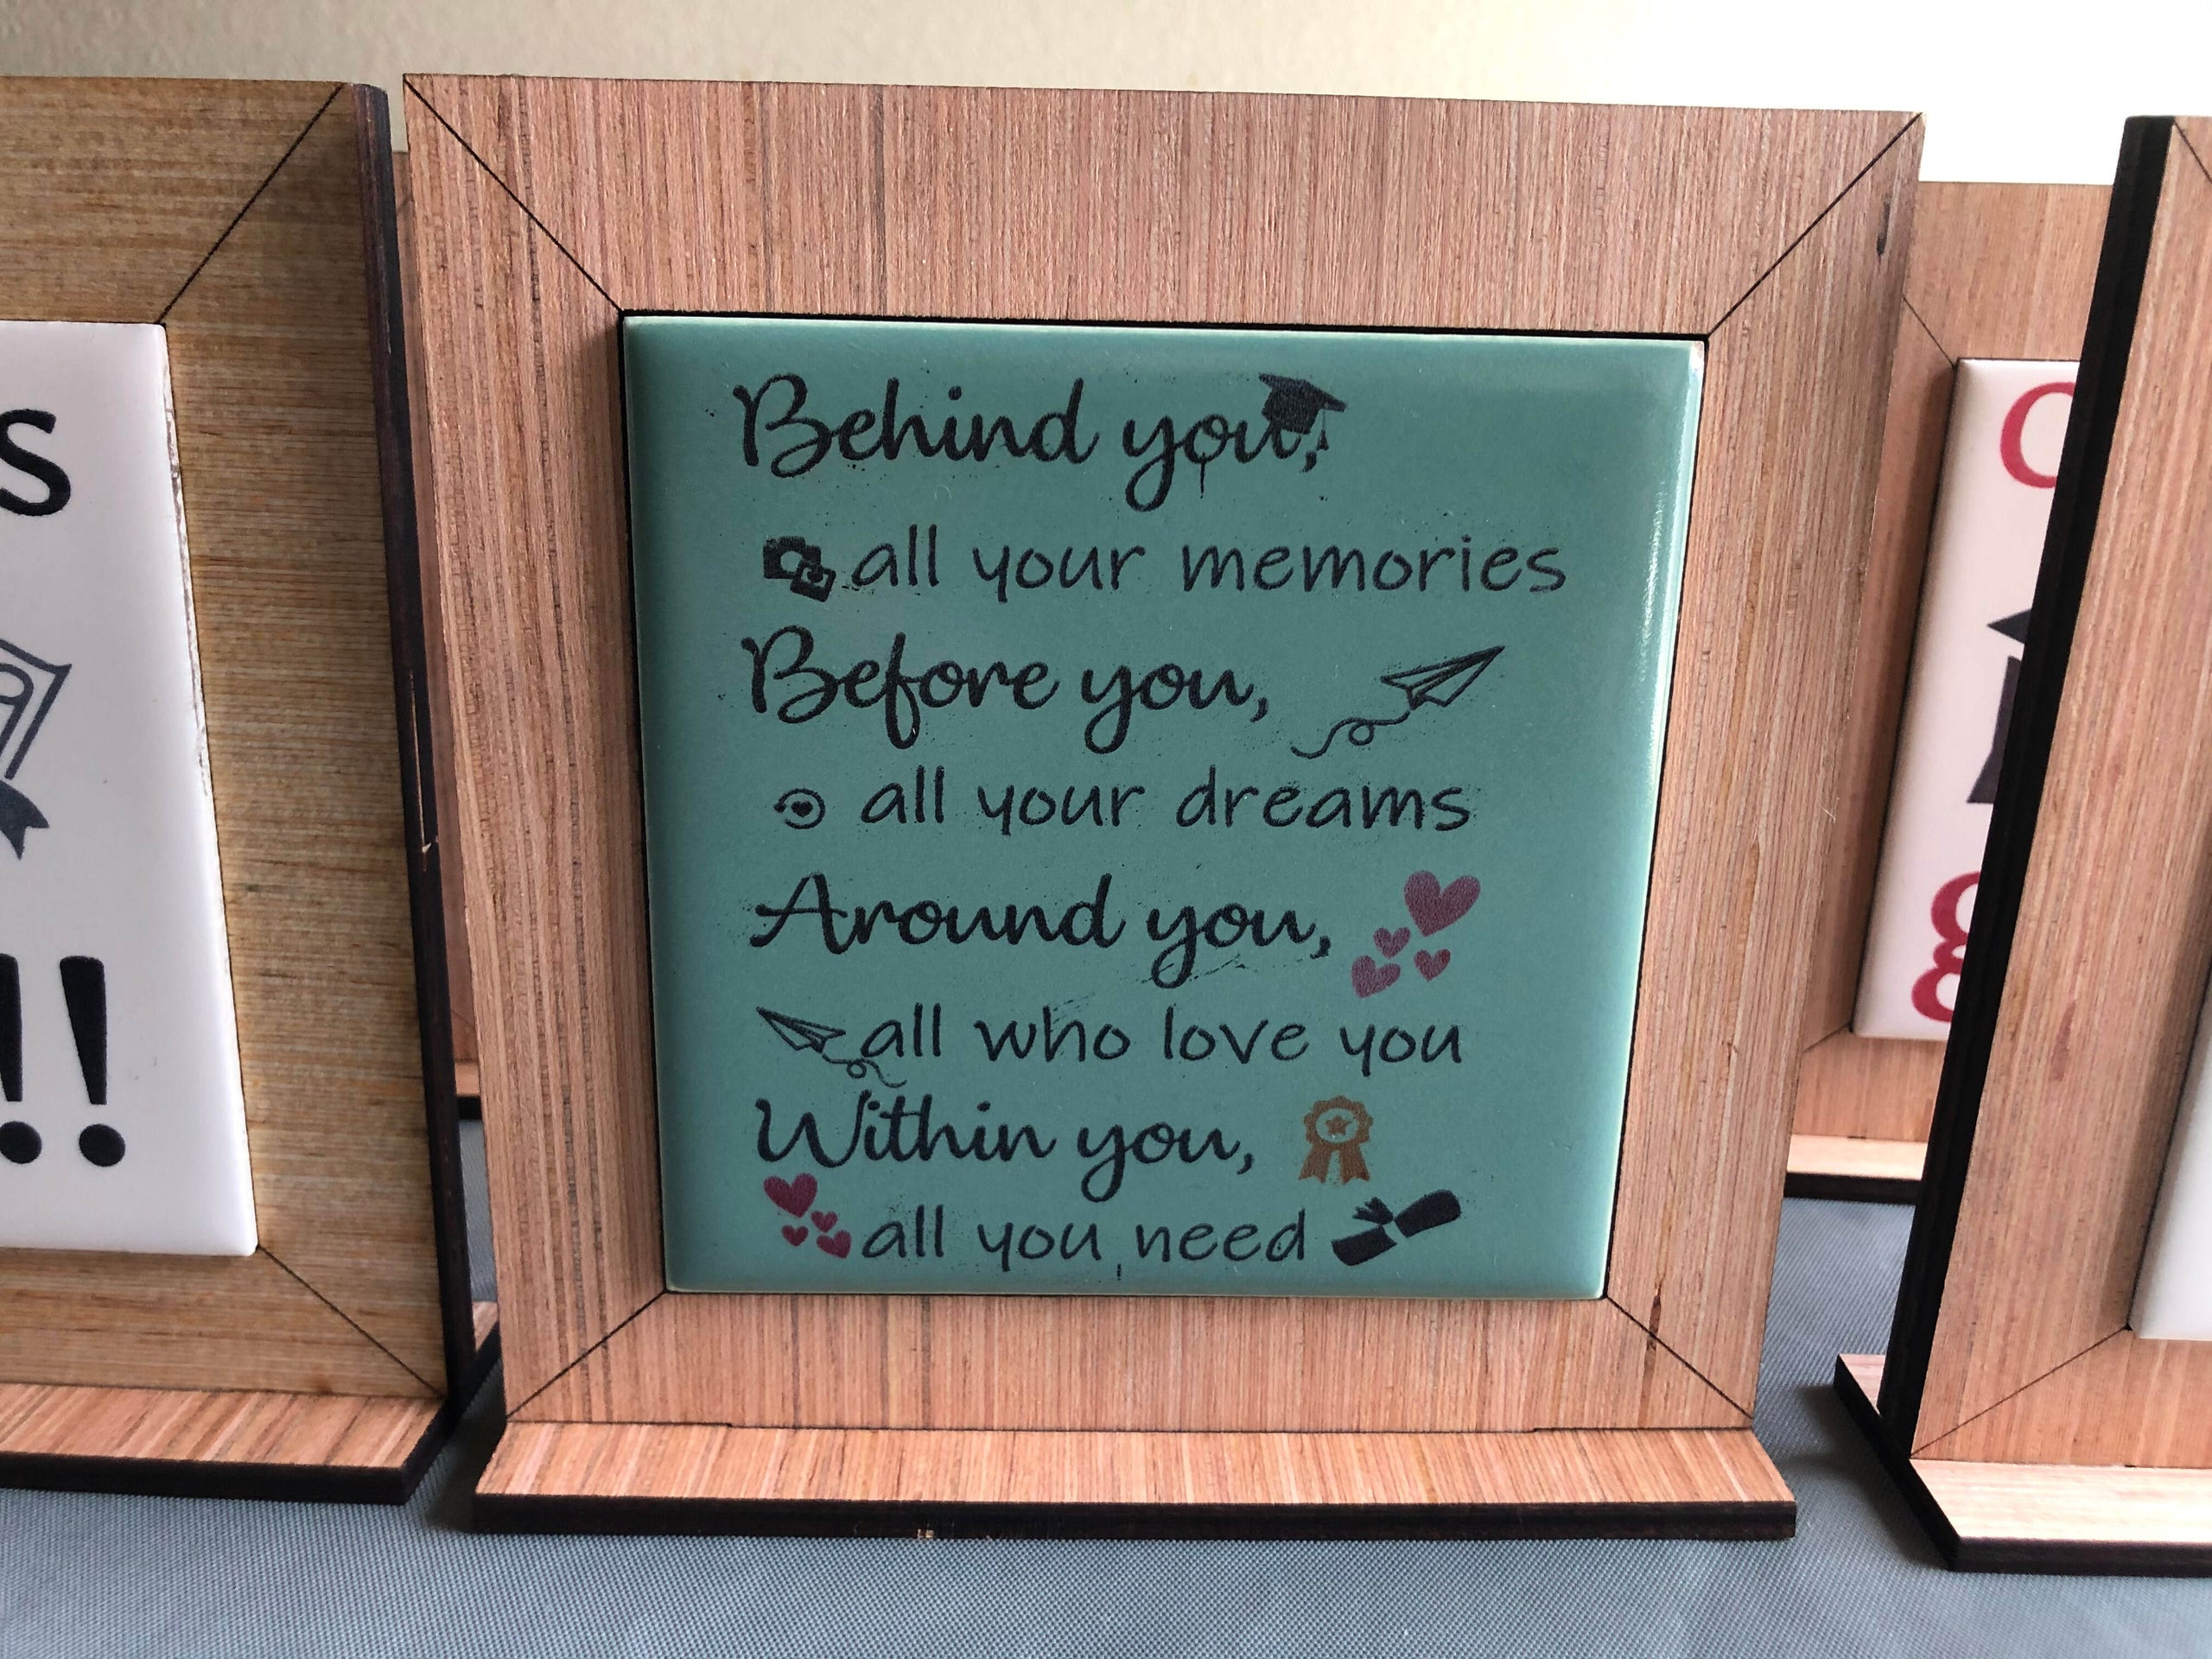 Behind you,
all your memories
Before you,
all your dreams
Around you,
all who love you
Within you,
all you need
S
!!